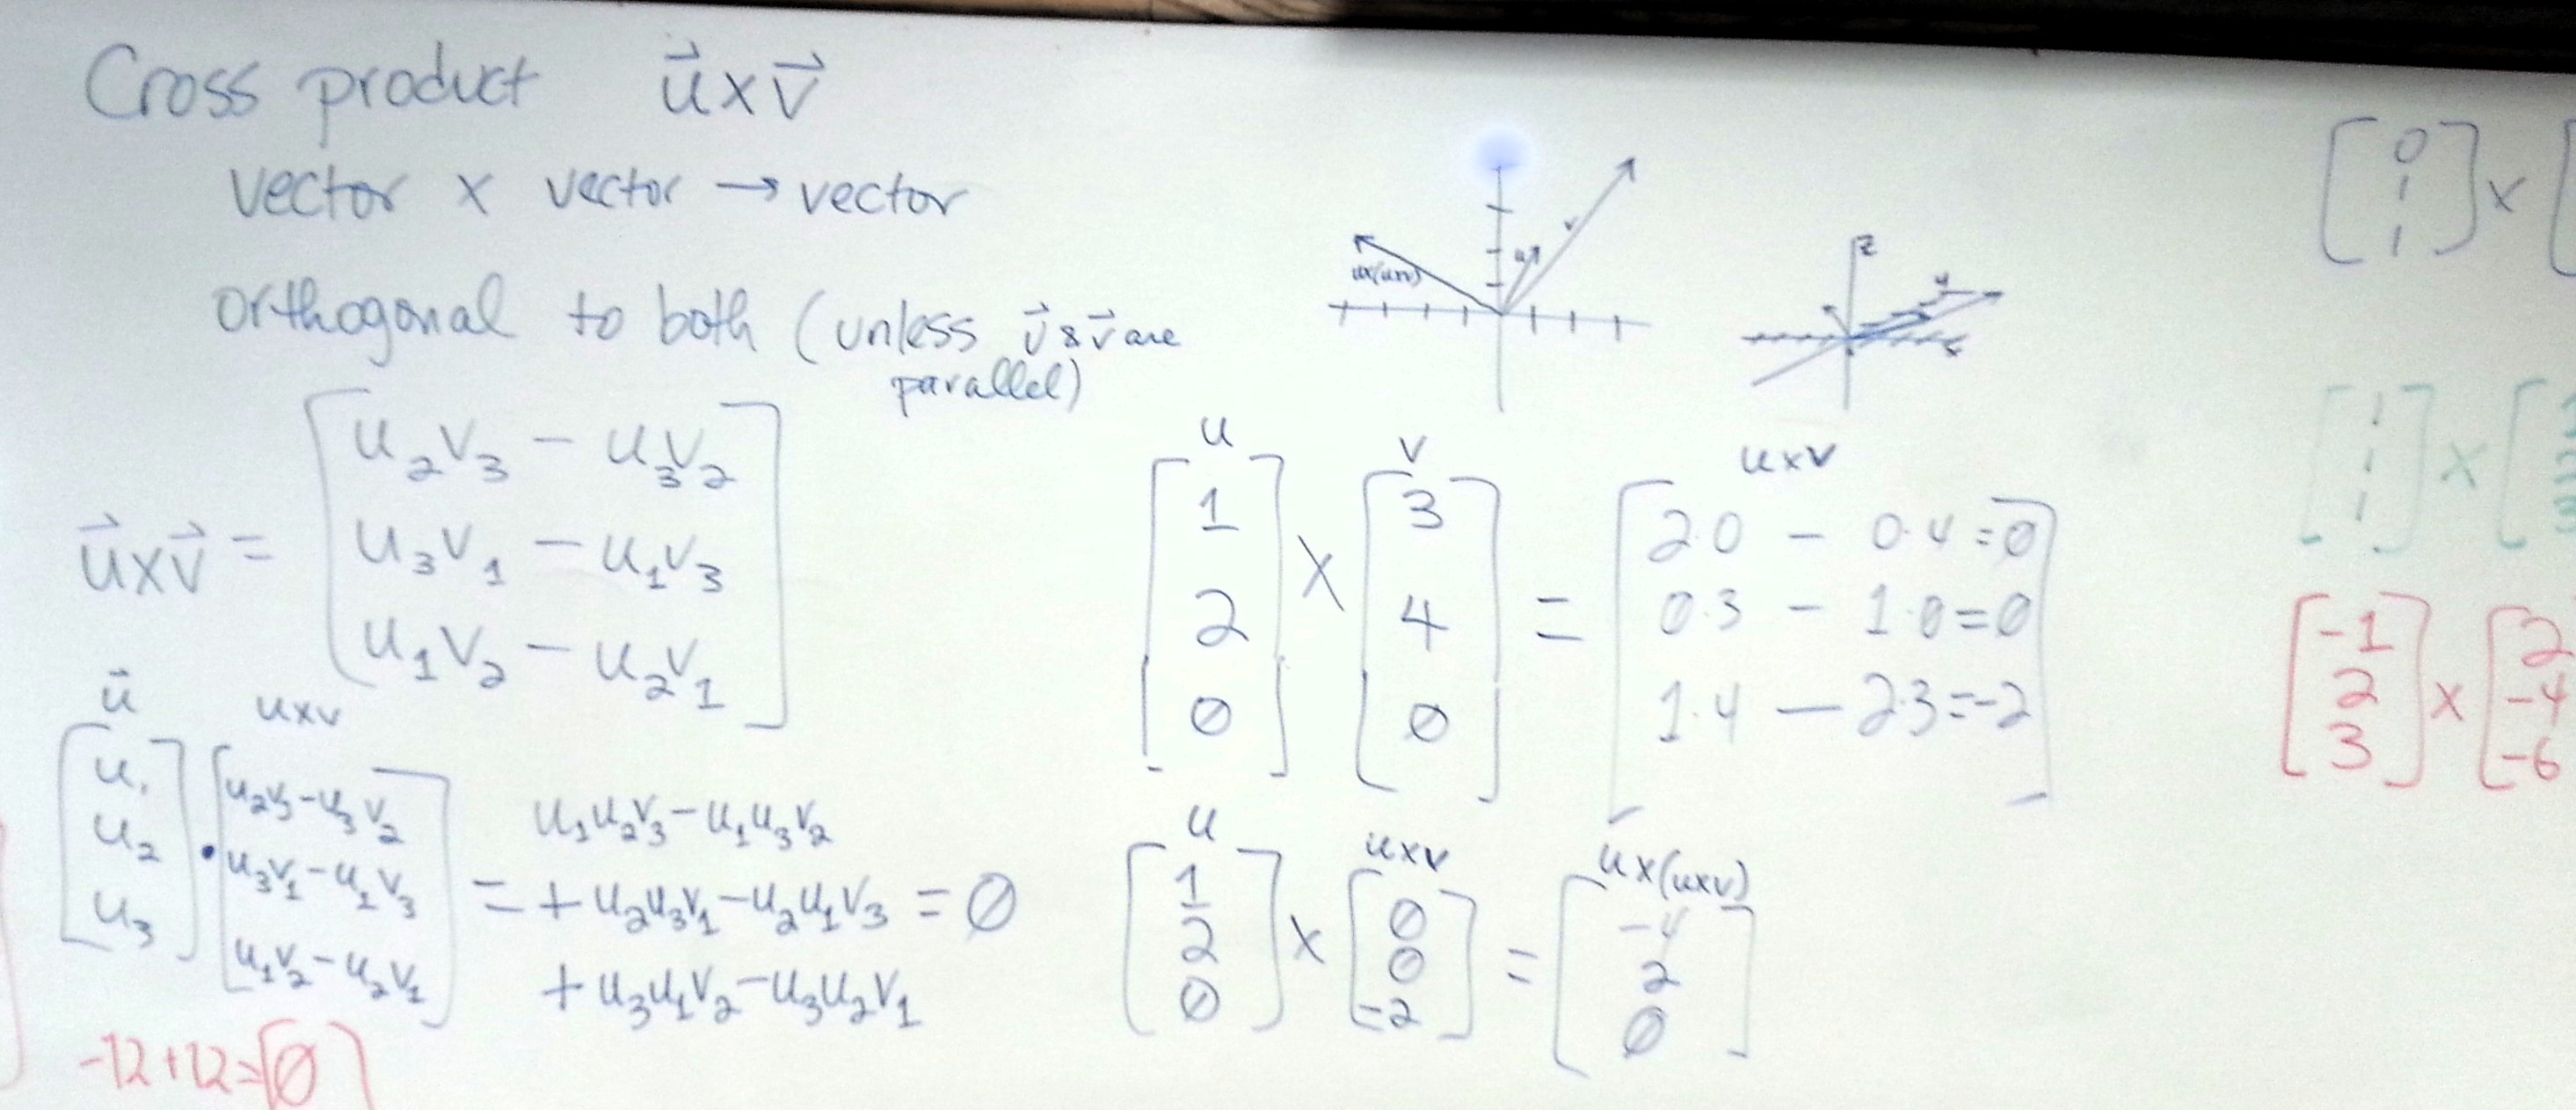 Cross product u⃗ x v⃗
vector x vector → vector
orthogonal to both (unless u⃗ & v⃗ are
parallel)
u⃗ x v⃗ = [u₂v₃ − u₃v₂
u₃v₁ − u₁v₃
u₁v₂ − u₂v₁]
u⃗ uxv
[u₁ u₂ u₃] · [u₂v₃−u₃v₂
u₃v₁−u₁v₃
u₁v₂−u₂v₁]
= u₁u₂v₃−u₁u₃v₂
+ u₂u₃v₁−u₂u₁v₃ = 0
+ u₃u₁v₂−u₃u₂v₁
-12+12=0
ux(uxv) u v
z
u v uxv
[1 2 0] x [3 4 0] =
[2·0 − 0·4=0
0·3 − 1·0=0
1·4 − 2·3=-2]
u uxv ux(uxv)
[1 2 0] x [0 0 -2] = [-4 2 0]
[0 1 1] x [
[1 1 1] x [
[-1 2 3] x [2 -4 -6